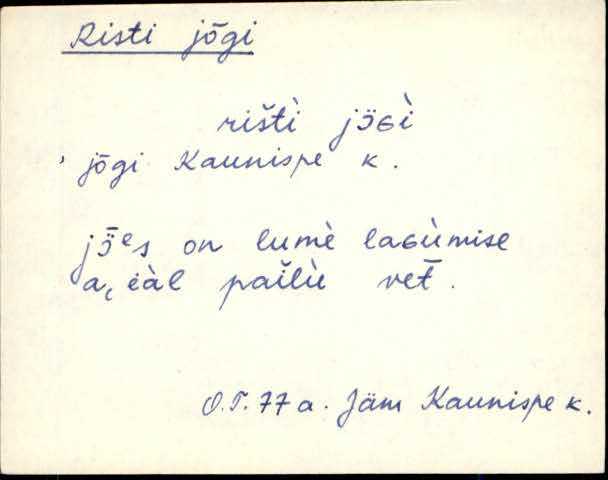 Risti jõgi
rištì jɔ̈ɢì
jõgi Kaunispe k.
jɔ̈̄ᵉs on lumè laɢùmise
pašlù vet̄.
O.T. 77 a. Jäm Kaunispe k.